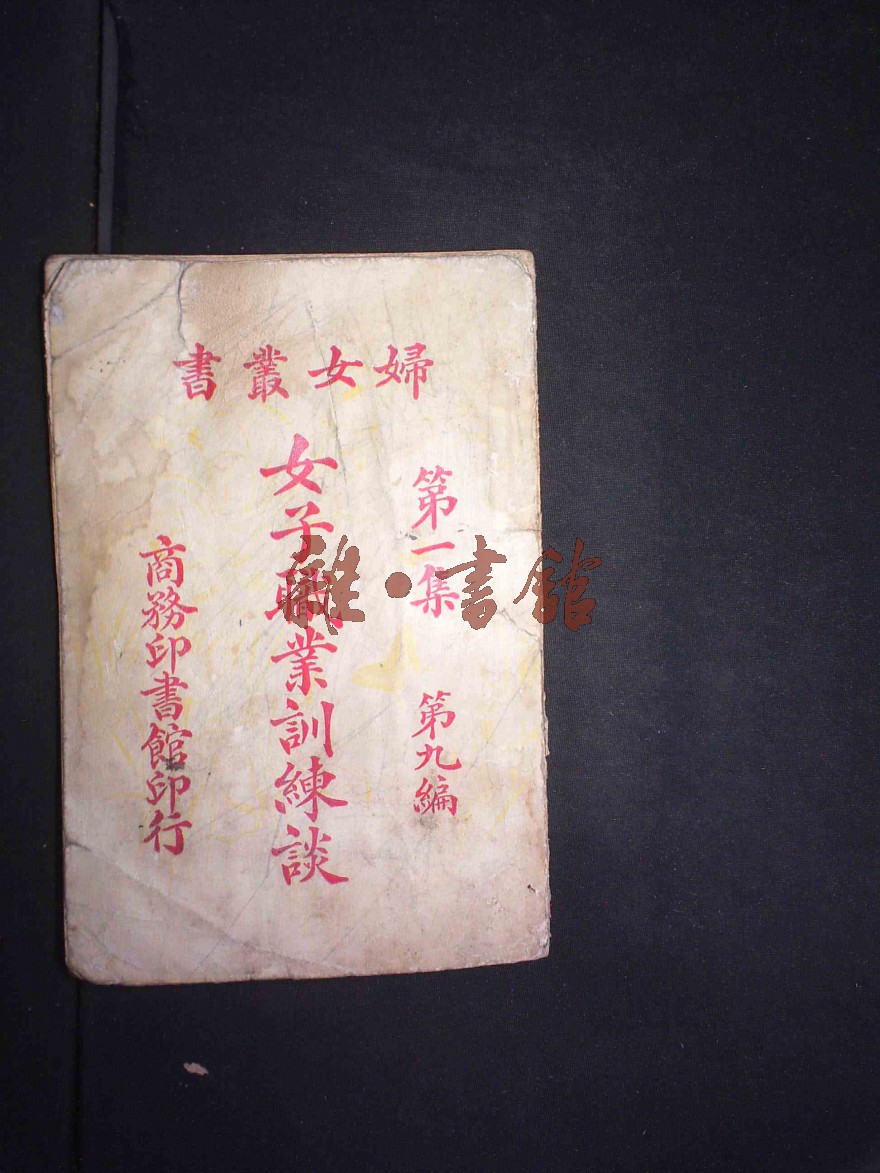 婦女叢書
第一集 第九編
女子職業訓練談
商務印書館印行
雜·書館